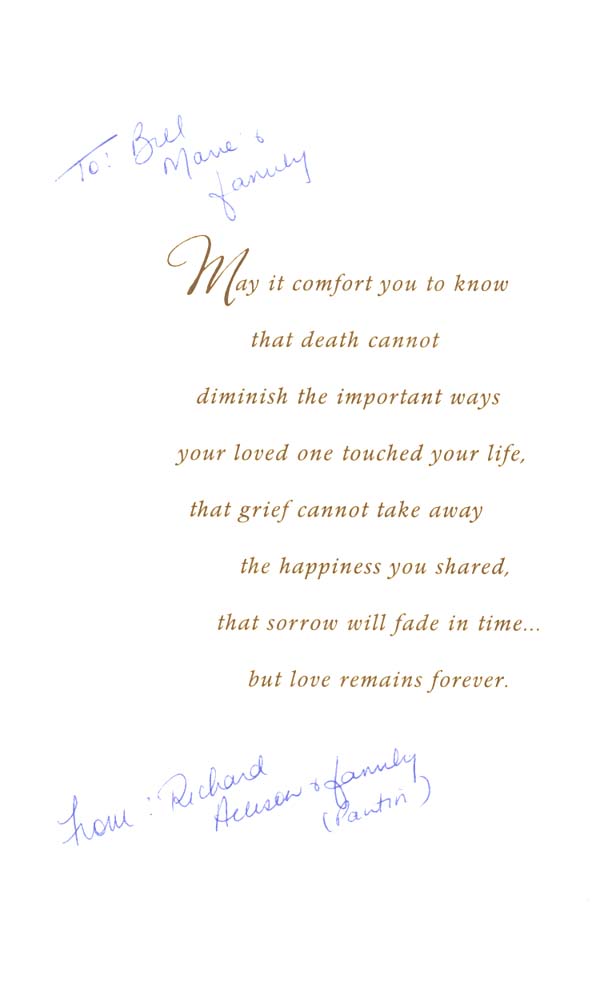 To: Bill
Marie &
family
May it comfort you to know
that death cannot
diminish the important ways
your loved one touched your life,
that grief cannot take away
the happiness you shared,
that sorrow will fade in time...
but love remains forever.
From: Richard
Allison & family